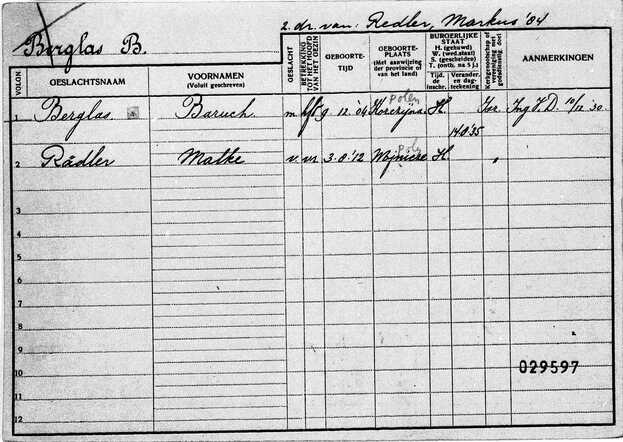 2. dr. van: Redler, Markus '04
Berglas B.
VOLGN.
GESLACHTSNAAM
VOORNAMEN
(Voluit geschreven)
GESLACHT
BETREKKING TOT HET HOOFD VAN HET GEZIN
GEBOORTE-
TIJD
GEBOORTE-
PLAATS
(Met aanwijzing
der provincie of
van het land)
BURGERLIJKE
STAAT
H. (gehuwd)
W. (wed.staat)
S. (gescheiden)
T. (ontb. na 5 j.)
Tijd. de inschr.
Verander. en dag-teekening
Kerkgenootschap of vereeniging met godsdienstig doel
AANMERKINGEN
Polen
1 Berglas Baruch m hfd 9. 12. '04 H. Isr. Ing V.D. 10/12 '30
14.8.'35
Pol
2 Rädler Malke v. vr. 3.8.'12 H. "
3
4
5
6
7
8
9
10 029597
11
12